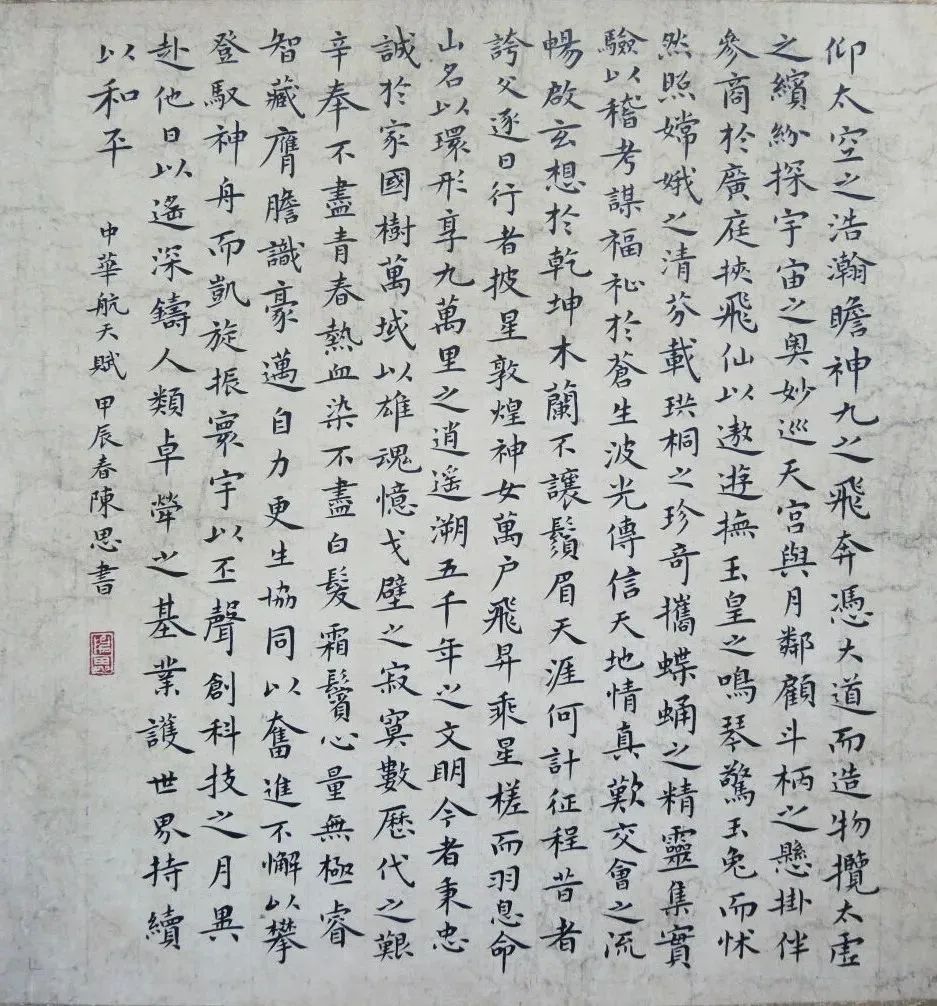 仰太空之浩瀚瞻神九之飛奔憑大道而造物攬太虛
之繽紛探宇宙之奧妙巡天宮與月鄰顧斗柄之懸掛伴
參商於廣庭挾飛仙以遨遊撫玉皇之鳴琴驚玉兔而怵
然照嫦娥之清芬載珙桐之珍奇攜蝶蛹之精靈集實
驗以稽考謀福祉於蒼生波光傳信天地情真歎交會之流
暢啟玄想於乾坤木蘭不讓鬚眉天涯何計征程昔者
誇父逐日行者披星敦煌神女萬户飛昇乘星槎而羽息命
山名以環形享九萬里之逍遥溯五千年之文明今者秉忠
誠於家國樹萬域以雄魂憶戈壁之寂寞數歷代之艱
辛奉不盡青春熱血染不盡白髮霜鬢心量無極睿
智藏膺膽識豪邁自力更生協同以奮進不懈以攀
登馭神舟而凱旋振寰宇以丕聲創科技之月異
赴他日以遙深鑄人類卓犖之基業護世界持續
以和平
中華航天賦甲辰春陳思書
陳思